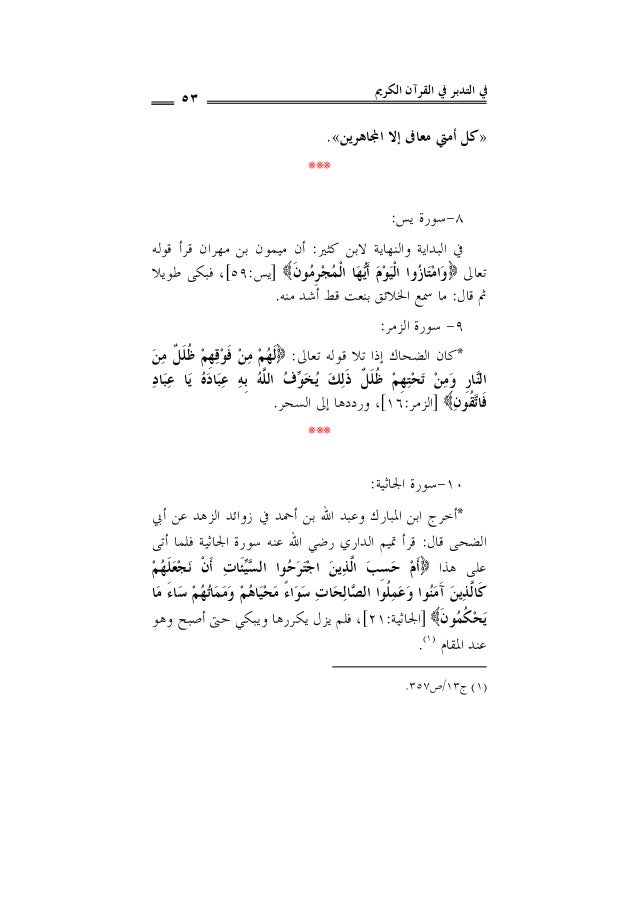 في التدبر في القرآن الكريم
٥٣
«كل أمتي معافى إلا المجاهرين».
***
٨-سورة يس:
في البداية والنهاية لابن كثير: أن ميمون بن مهران قرأ قوله
تعالى ﴿وَامْتَازُوا الْيَوْمَ أَيُّهَا الْمُجْرِمُونَ﴾ [يس:٥٩]، فبكى طويلا
ثم قال: ما سمع الخلائق بنعت قط أشد منه.
٩- سورة الزمر:
*كان الضحاك إذا تلا قوله تعالى: ﴿لَهُمْ مِنْ فَوْقِهِمْ ظُلَلٌ مِنَ
النَّارِ وَمِنْ تَحْتِهِمْ ظُلَلٌ ذَلِكَ يُخَوِّفُ اللَّهُ بِهِ عِبَادَهُ يَا عِبَادِ
فَاتَّقُونِ﴾ [الزمر:١٦]، ورددها إلى السحر.
***
١٠-سورة الجاثية:
*أخرج ابن المبارك وعبد الله بن أحمد في زوائد الزهد عن أبي
الضحى قال: قرأ تميم الداري رضي الله عنه سورة الجاثية فلما أتى
على هذا ﴿أَمْ حَسبَ الَّذِينَ اجْتَرَحُوا السَّيِّئَاتِ أَنْ نَجْعَلَهُمْ
كَالَّذِينَ آمَنُوا وَعَمِلُوا الصَّالِحَاتِ سَوَاءً مَحْيَاهُمْ وَمَمَاتُهُمْ سَاءَ مَا
يَحْكُمُونَ﴾ [الجاثية:٢١]، فلم يزل يكررها ويبكي حتى أصبح وهو
عند المقام (١).
(١) ج١٣/ص٣٥٧.